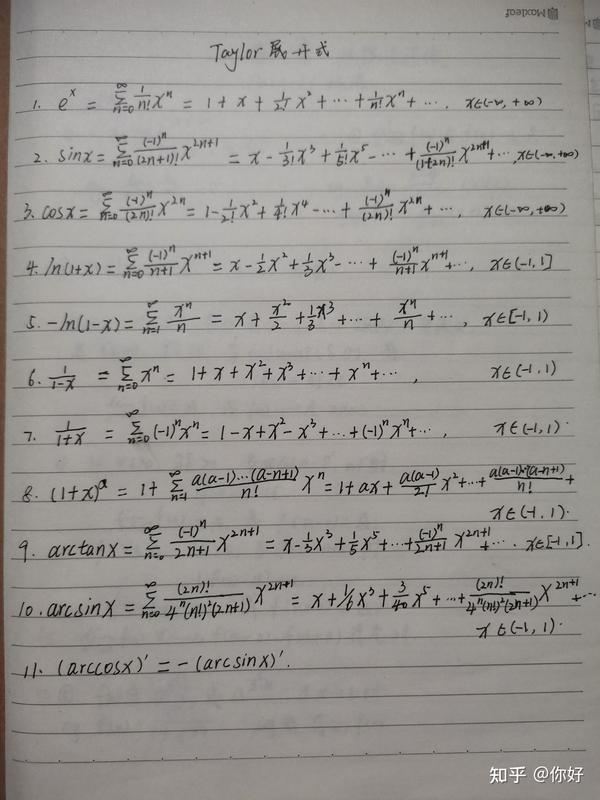 Maxleaf
Taylor展开式
1. e^x = ∑_{n=0}^∞ 1/n! x^n = 1 + x + 1/2! x^2 + ⋯ + 1/n! x^n + ⋯, x∈(-∞, +∞)
2. sinx = ∑_{n=0}^∞ (-1)^n/(2n+1)! x^{2n+1} = x - 1/3! x^3 + 1/5! x^5 - ⋯ + (-1)^n/(1+2n)! x^{2n+1} + ⋯, x∈(-∞, +∞)
3. cosx = ∑_{n=0}^∞ (-1)^n/(2n)! x^{2n} = 1 - 1/2! x^2 + 1/4! x^4 - ⋯ + (-1)^n/(2n)! x^{2n} + ⋯, x∈(-∞, +∞)
4. ln(1+x) = ∑_{n=0}^∞ (-1)^n/(n+1) x^{n+1} = x - 1/2 x^2 + 1/3 x^3 - ⋯ + (-1)^n/(n+1) x^{n+1} + ⋯, x∈(-1, 1]
5. -ln(1-x) = ∑_{n=1}^∞ x^n/n = x + x^2/2 + 1/3 x^3 + ⋯ + x^n/n + ⋯, x∈[-1, 1)
6. 1/(1-x) = ∑_{n=0}^∞ x^n = 1 + x + x^2 + x^3 + ⋯ + x^n + ⋯, x∈(-1, 1)
7. 1/(1+x) = ∑_{n=0}^∞ (-1)^n x^n = 1 - x + x^2 - x^3 + ⋯ + (-1)^n x^n + ⋯, x∈(-1, 1).
8. (1+x)^a = 1 + ∑_{n=1}^∞ a(a-1)⋯(a-n+1)/n! x^n = 1 + ax + a(a-1)/2! x^2 + ⋯ + a(a-1)⋯(a-n+1)/n! +
x∈(-1, 1).
9. arctanx = ∑_{n=0}^∞ (-1)^n/(2n+1) x^{2n+1} = x - 1/3 x^3 + 1/5 x^5 + ⋯ + (-1)^n/(2n+1) x^{2n+1} + ⋯. x∈[-1, 1].
10. arcsinx = ∑_{n=0}^∞ (2n)!/(4^n(n!)^2(2n+1)) x^{2n+1} = x + 1/6 x^3 + 3/40 x^5 + ⋯ + (2n)!/(4^n(n!)^2(2n+1)) x^{2n+1} + ⋯
x∈(-1, 1).
11. (arccosx)' = -(arcsinx)'.
知乎 @你好